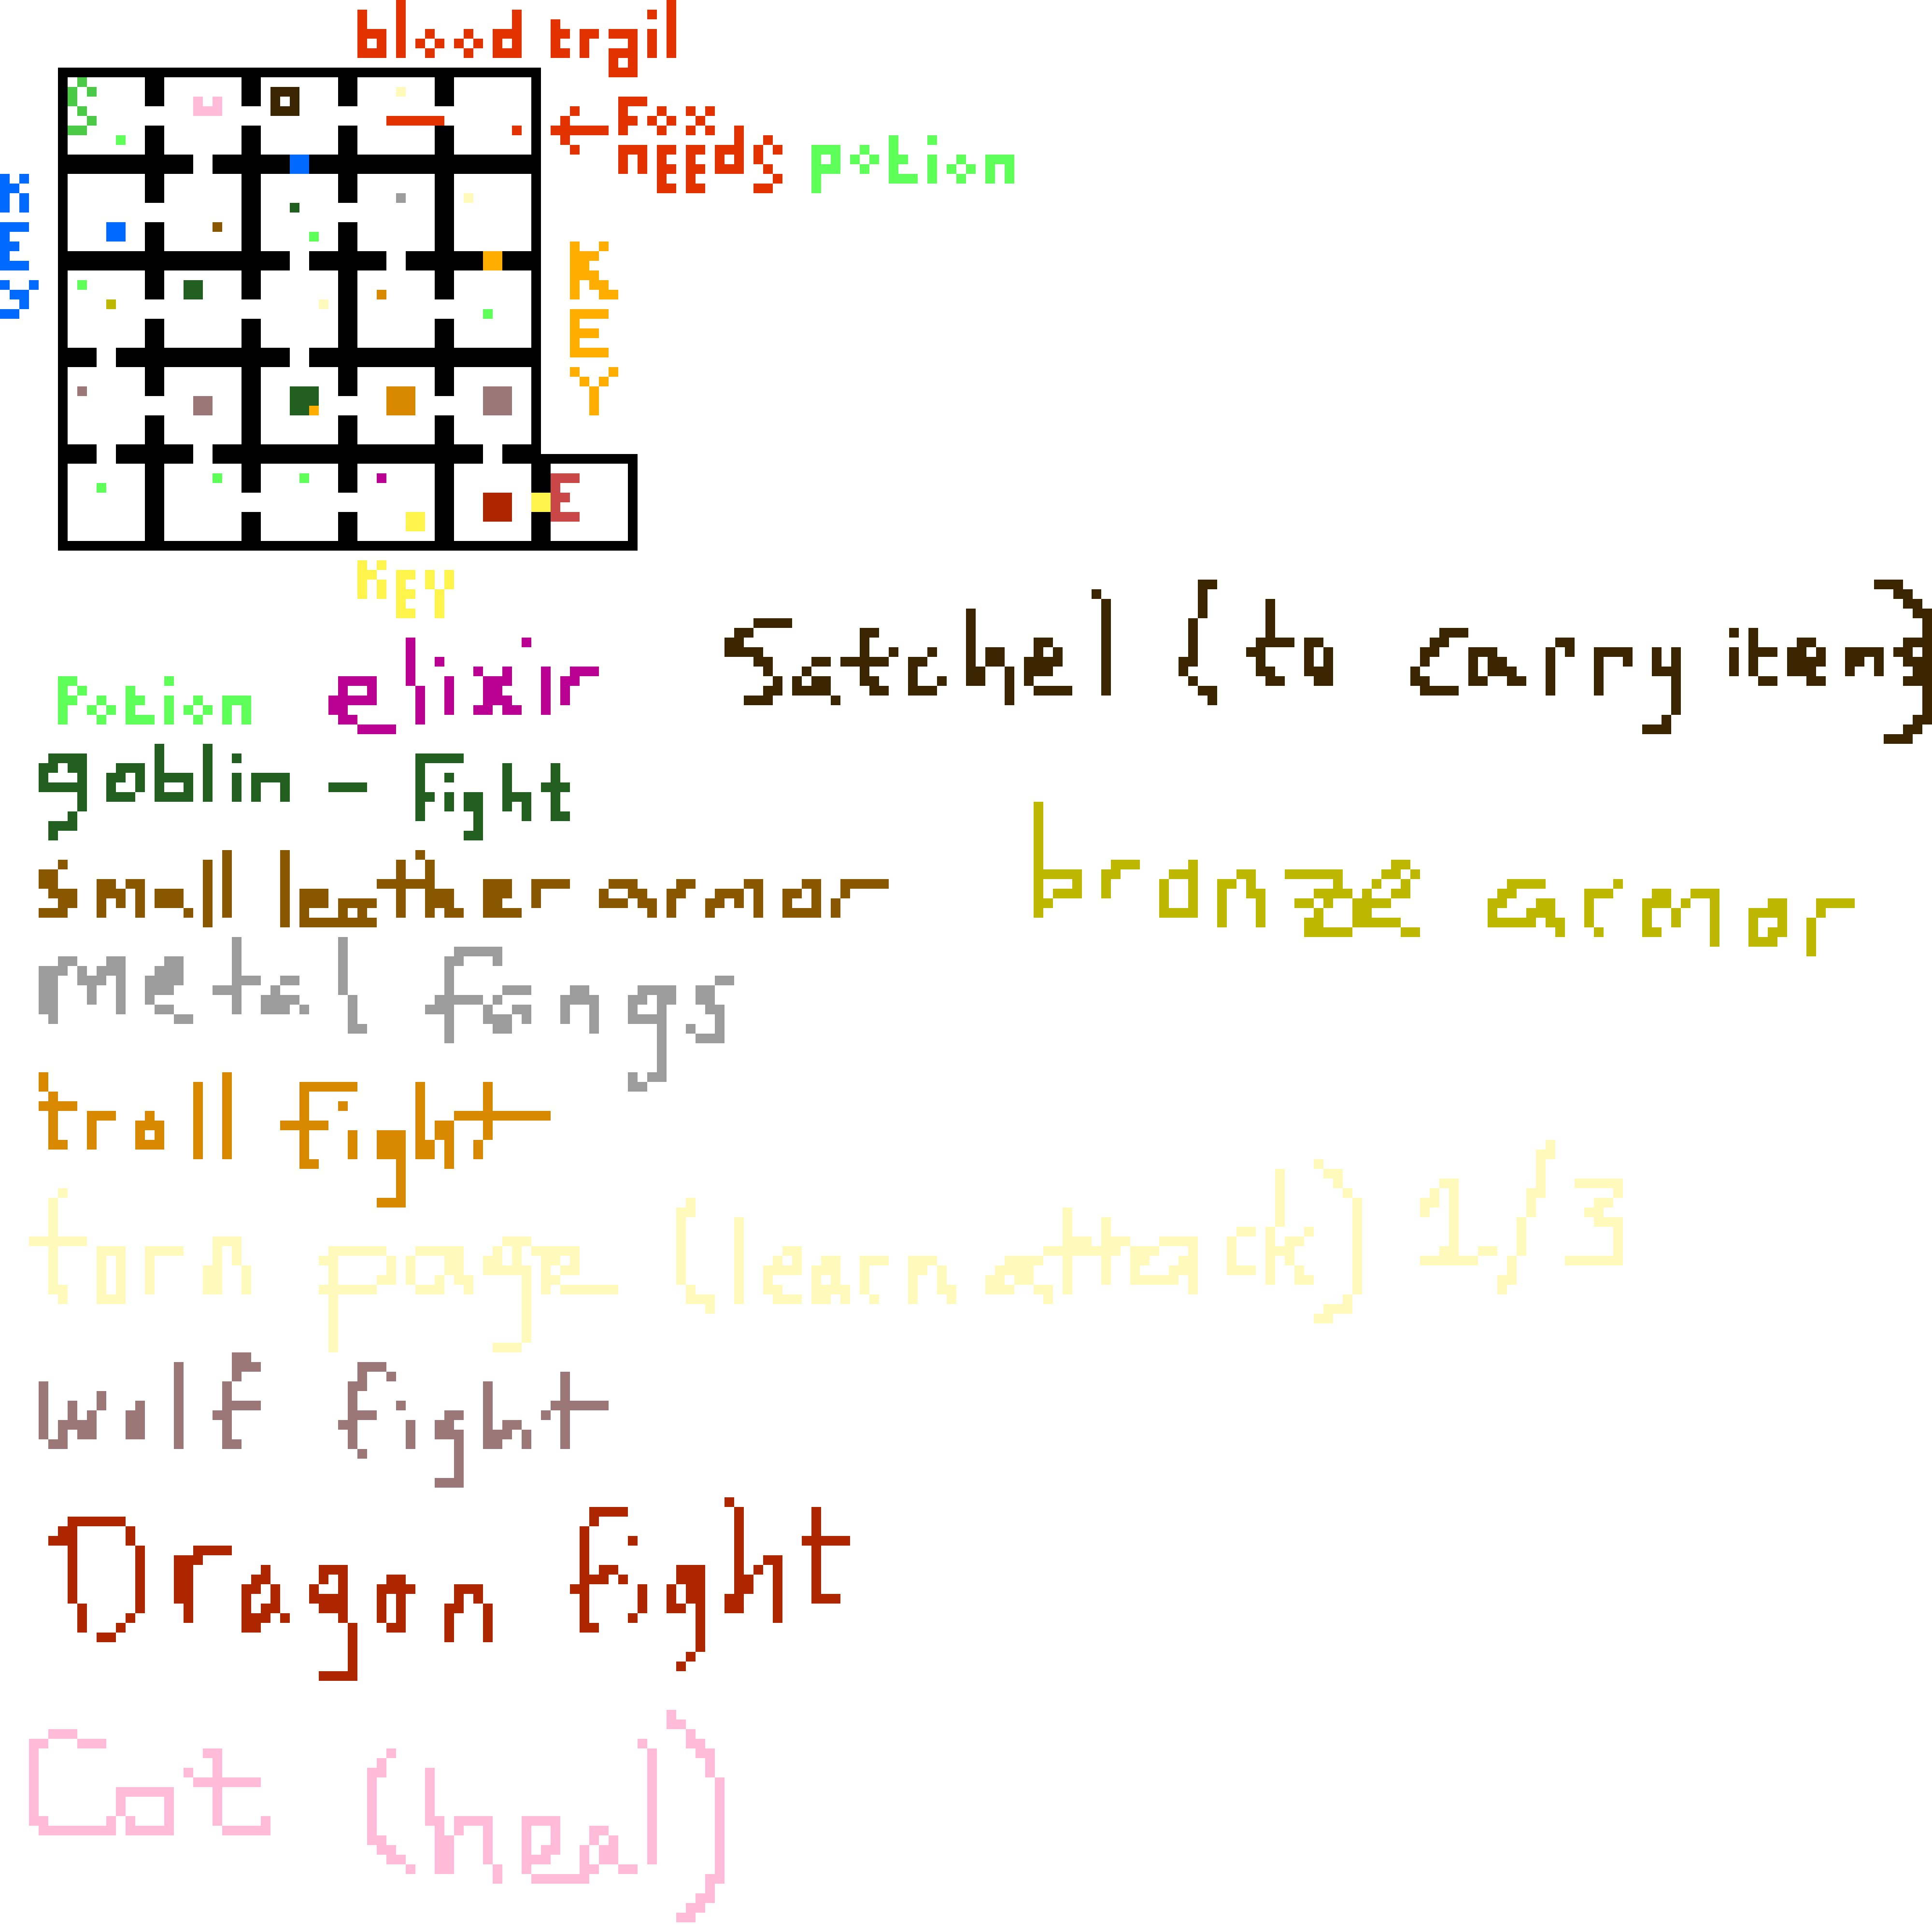 blood trail
S
← Fox
needs potion
KEY
KEY
E
KEY
Satchel (to carry item)
Potion elixir
goblin - Fight
Small leather armor bronze armor
metal fangs
troll fight
torn page (learn attack) 1/3
wolf fight
Dragon fight
Cat (heal)